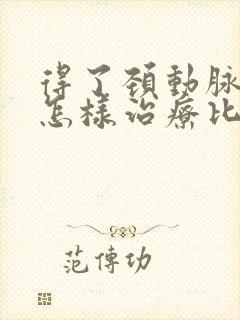 得了頚動脉
怎樣治療比
范傳功